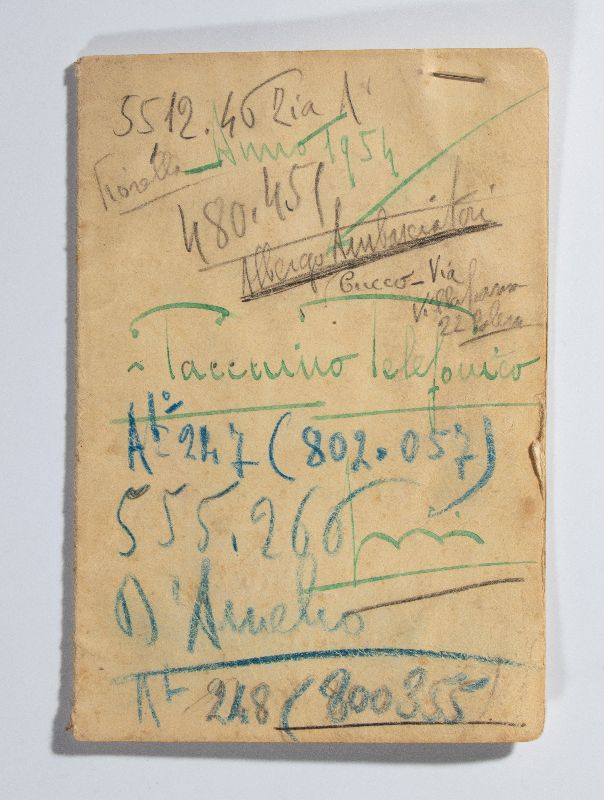 5512.46 Zia A
Fiorella Anno 1954
480.451
Albergo Ambasciatori
Cucco - Via
Villafranca
22
Taccuino Telefonico
At 247 (802.057)
555.260
D'Amelio
At 248 (800355)